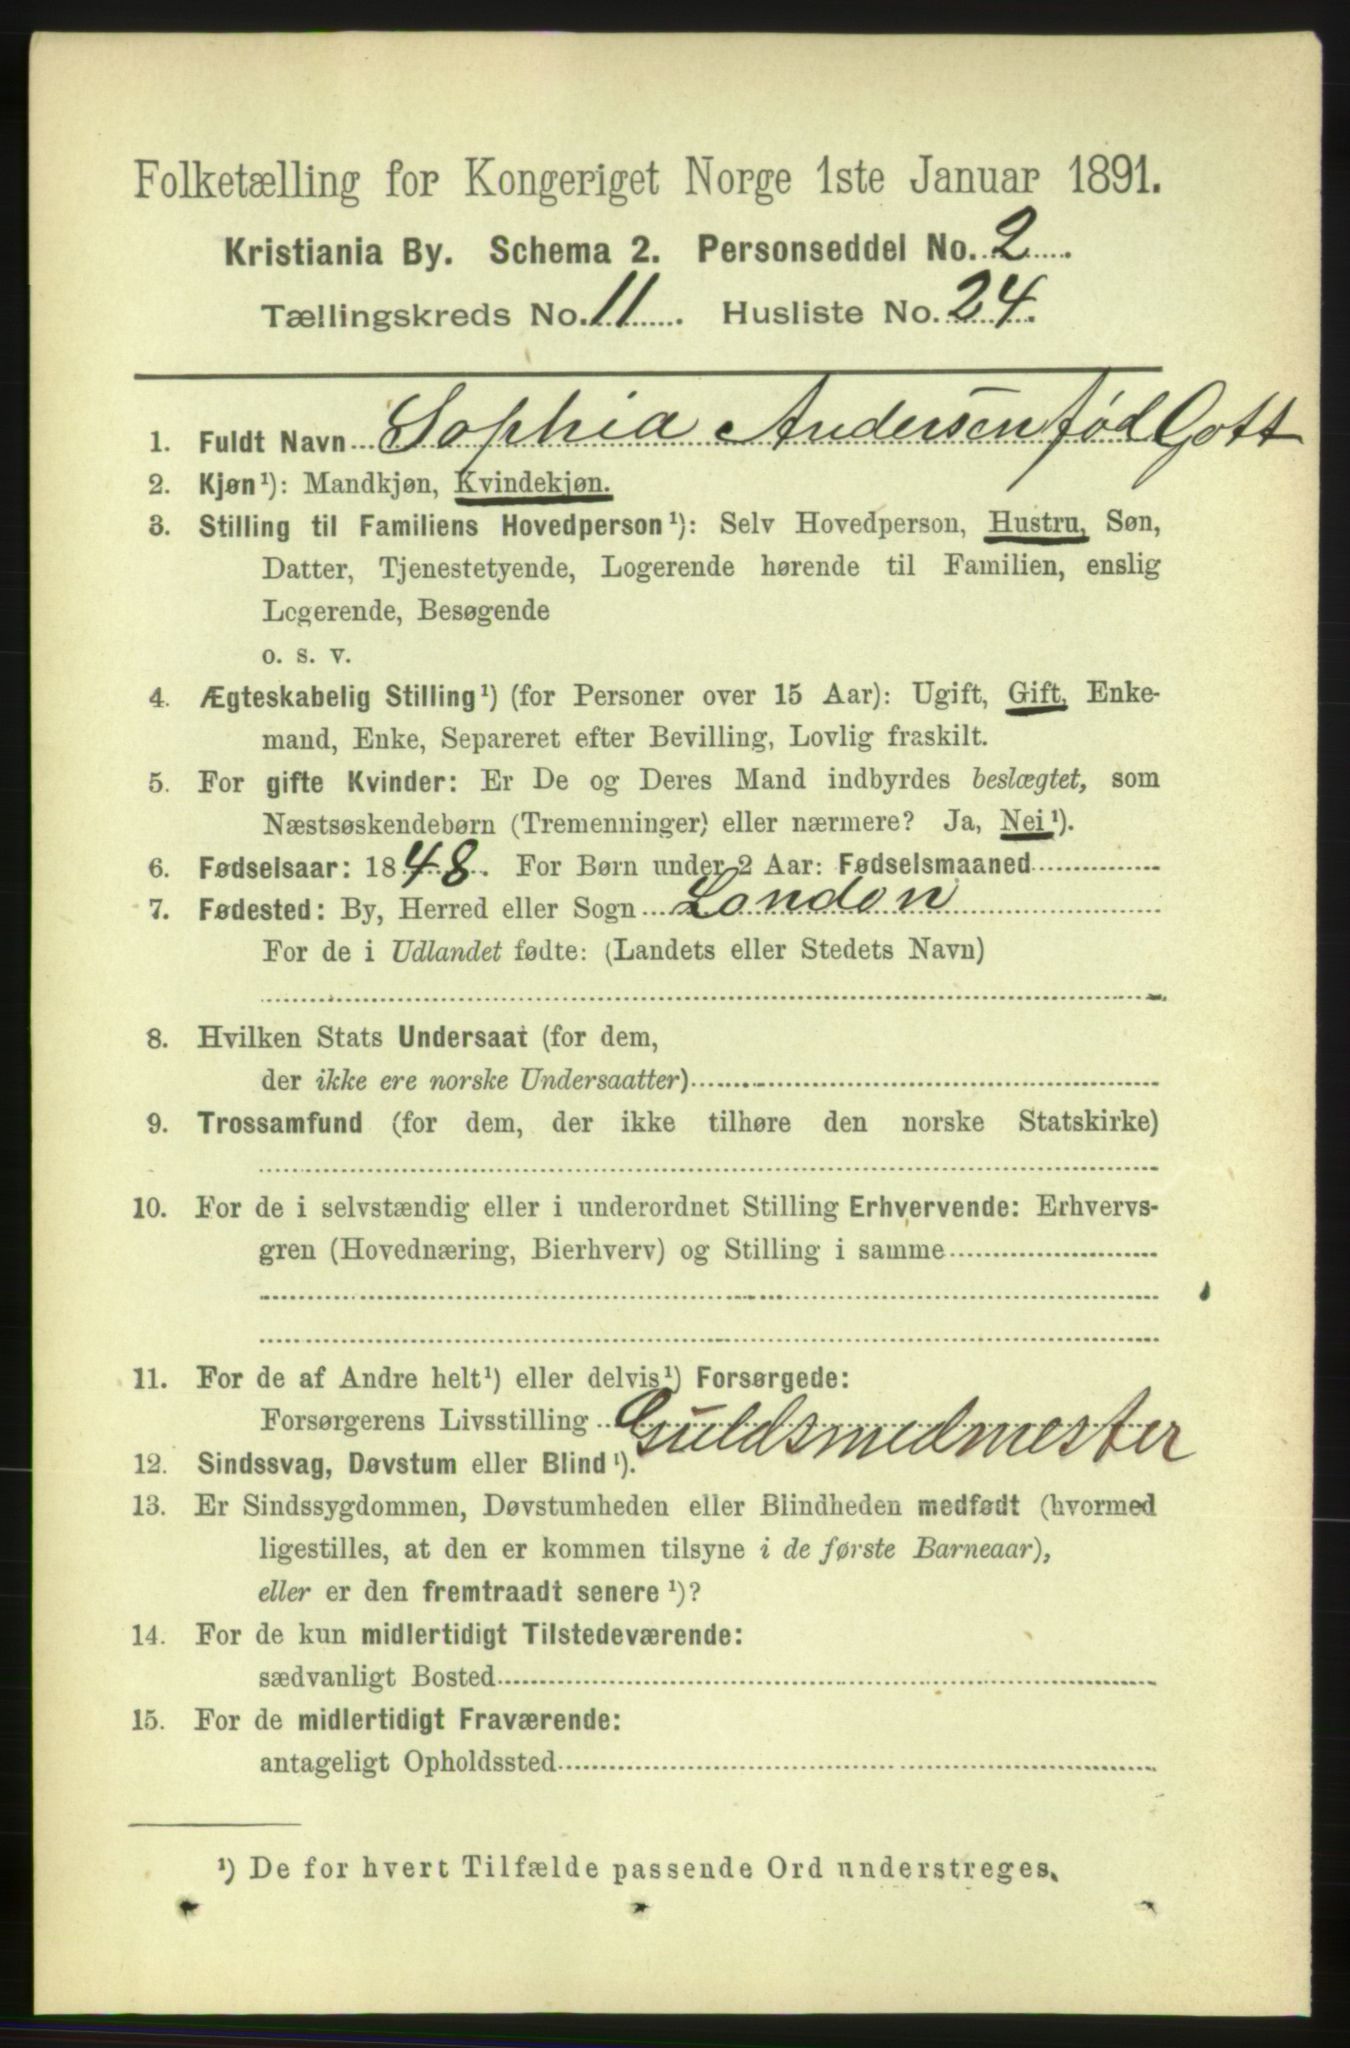 Folketælling for Kongeriget Norge 1ste Januar 1891.
Kristiania By. Schema 2. Personseddel No. 2.
Tællingskreds No. 11. Husliste No. 24.
1. Fuldt Navn Sophia Andersen fød Gott
2. Kjøn¹): Mandkjøn, Kvindekjøn.
3. Stilling til Familiens Hovedperson¹): Selv Hovedperson, Hustru, Søn,
Datter, Tjenestetyende, Logerende hørende til Familien, enslig
Logerende, Besøgende
o. s. v.
4. Ægteskabelig Stilling¹) (for Personer over 15 Aar): Ugift, Gift, Enke-
mand, Enke, Separeret efter Bevilling, Lovlig fraskilt.
5. For gifte Kvinder: Er De og Deres Mand indbyrdes beslægtet, som
Næstsøskendebørn (Tremenninger) eller nærmere? Ja, Nei¹).
6. Fødselsaar: 1848. For Børn under 2 Aar: Fødselsmaaned
7. Fødested: By, Herred eller Sogn London
For de i Udlandet fødte: (Landets eller Stedets Navn)
8. Hvilken Stats Undersaat (for dem,
der ikke ere norske Undersaatter)
9. Trossamfund (for dem, der ikke tilhøre den norske Statskirke)
10. For de i selvstændig eller i underordnet Stilling Erhvervende: Erhvervs-
gren (Hovednæring, Bierhverv) og Stilling i samme
11. For de af Andre helt¹) eller delvis¹) Forsørgede:
Forsørgerens Livsstilling Guldsmedmester
12. Sindssvag, Døvstum eller Blind¹).
13. Er Sindssygdommen, Døvstumheden eller Blindheden medfødt (hvormed
ligestilles, at den er kommen tilsyne i de første Barneaar),
eller er den fremtraadt senere¹)?
14. For de kun midlertidigt Tilstedeværende:
sædvanligt Bosted
15. For de midlertidigt Fraværende:
antageligt Opholdssted
¹) De for hvert Tilfælde passende Ord understreges.